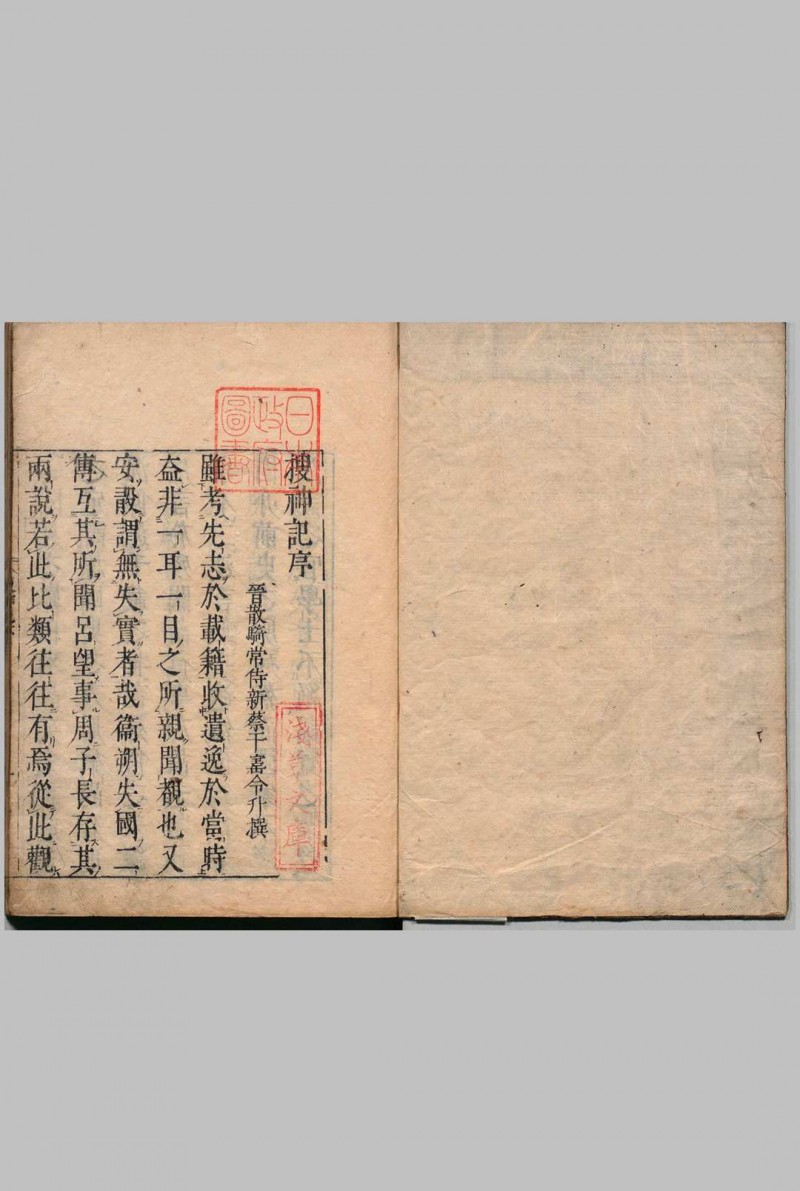 搜神記序
晉散騎常侍新蔡干寳令升撰
雖考先志於載籍收遺逸於當時
葢非一耳一目之所親聞覩也又
安敢謂無失實者哉衞朔失國二
傳互其所聞呂望事周子長存其
兩說若此比類往往有焉從此觀
日本
政府
圖書
淺草文庫